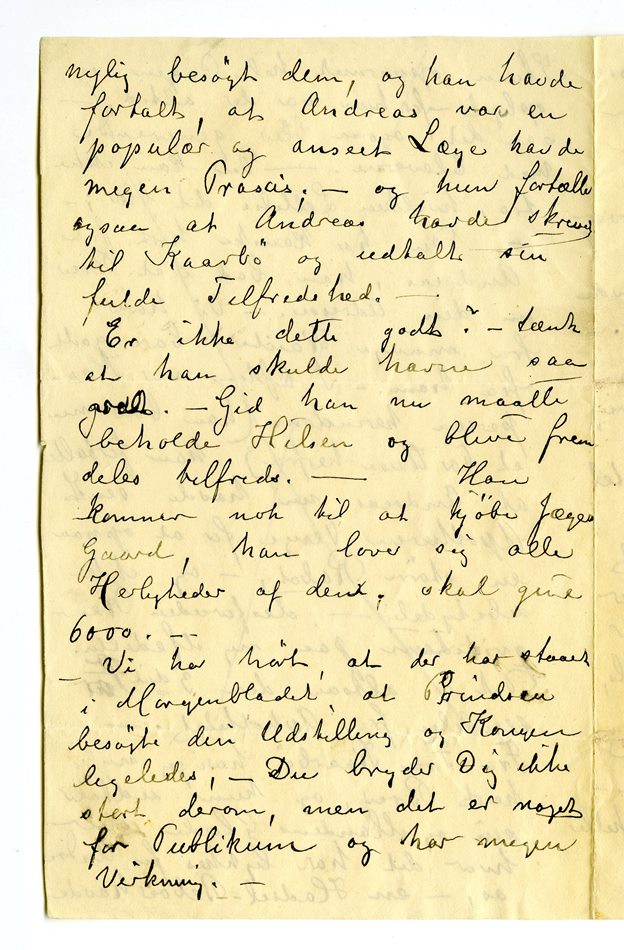 nylig besøgt dem, og han havde
fortalt, at Andreas var en
populær og anseet Læge havde
megen Praxis, — og hun fortæller
ogsaa at Andreas havde skrevet
til Kaarbö og udtalt sin
fulde Tilfredshed. —
Er ikke dette godt? — tænk
at han skulde havne saa
godt. — Gid han nu maatte
beholde Helsen og blive frem
deles tilfreds. — Han
kommer nok til at kjöbe Jæger
Gaard, han lover sig alle
Herligheder af den; skal give
6000. —
— Vi har hört, at der har staaet
i Morgenbladet, at Prindsen
besögte din Udstilling og Kongen
ligeledes, — Du bryder Dig ikke
stort derom, men det er noget
for Publikum og har megen
Virkning. —